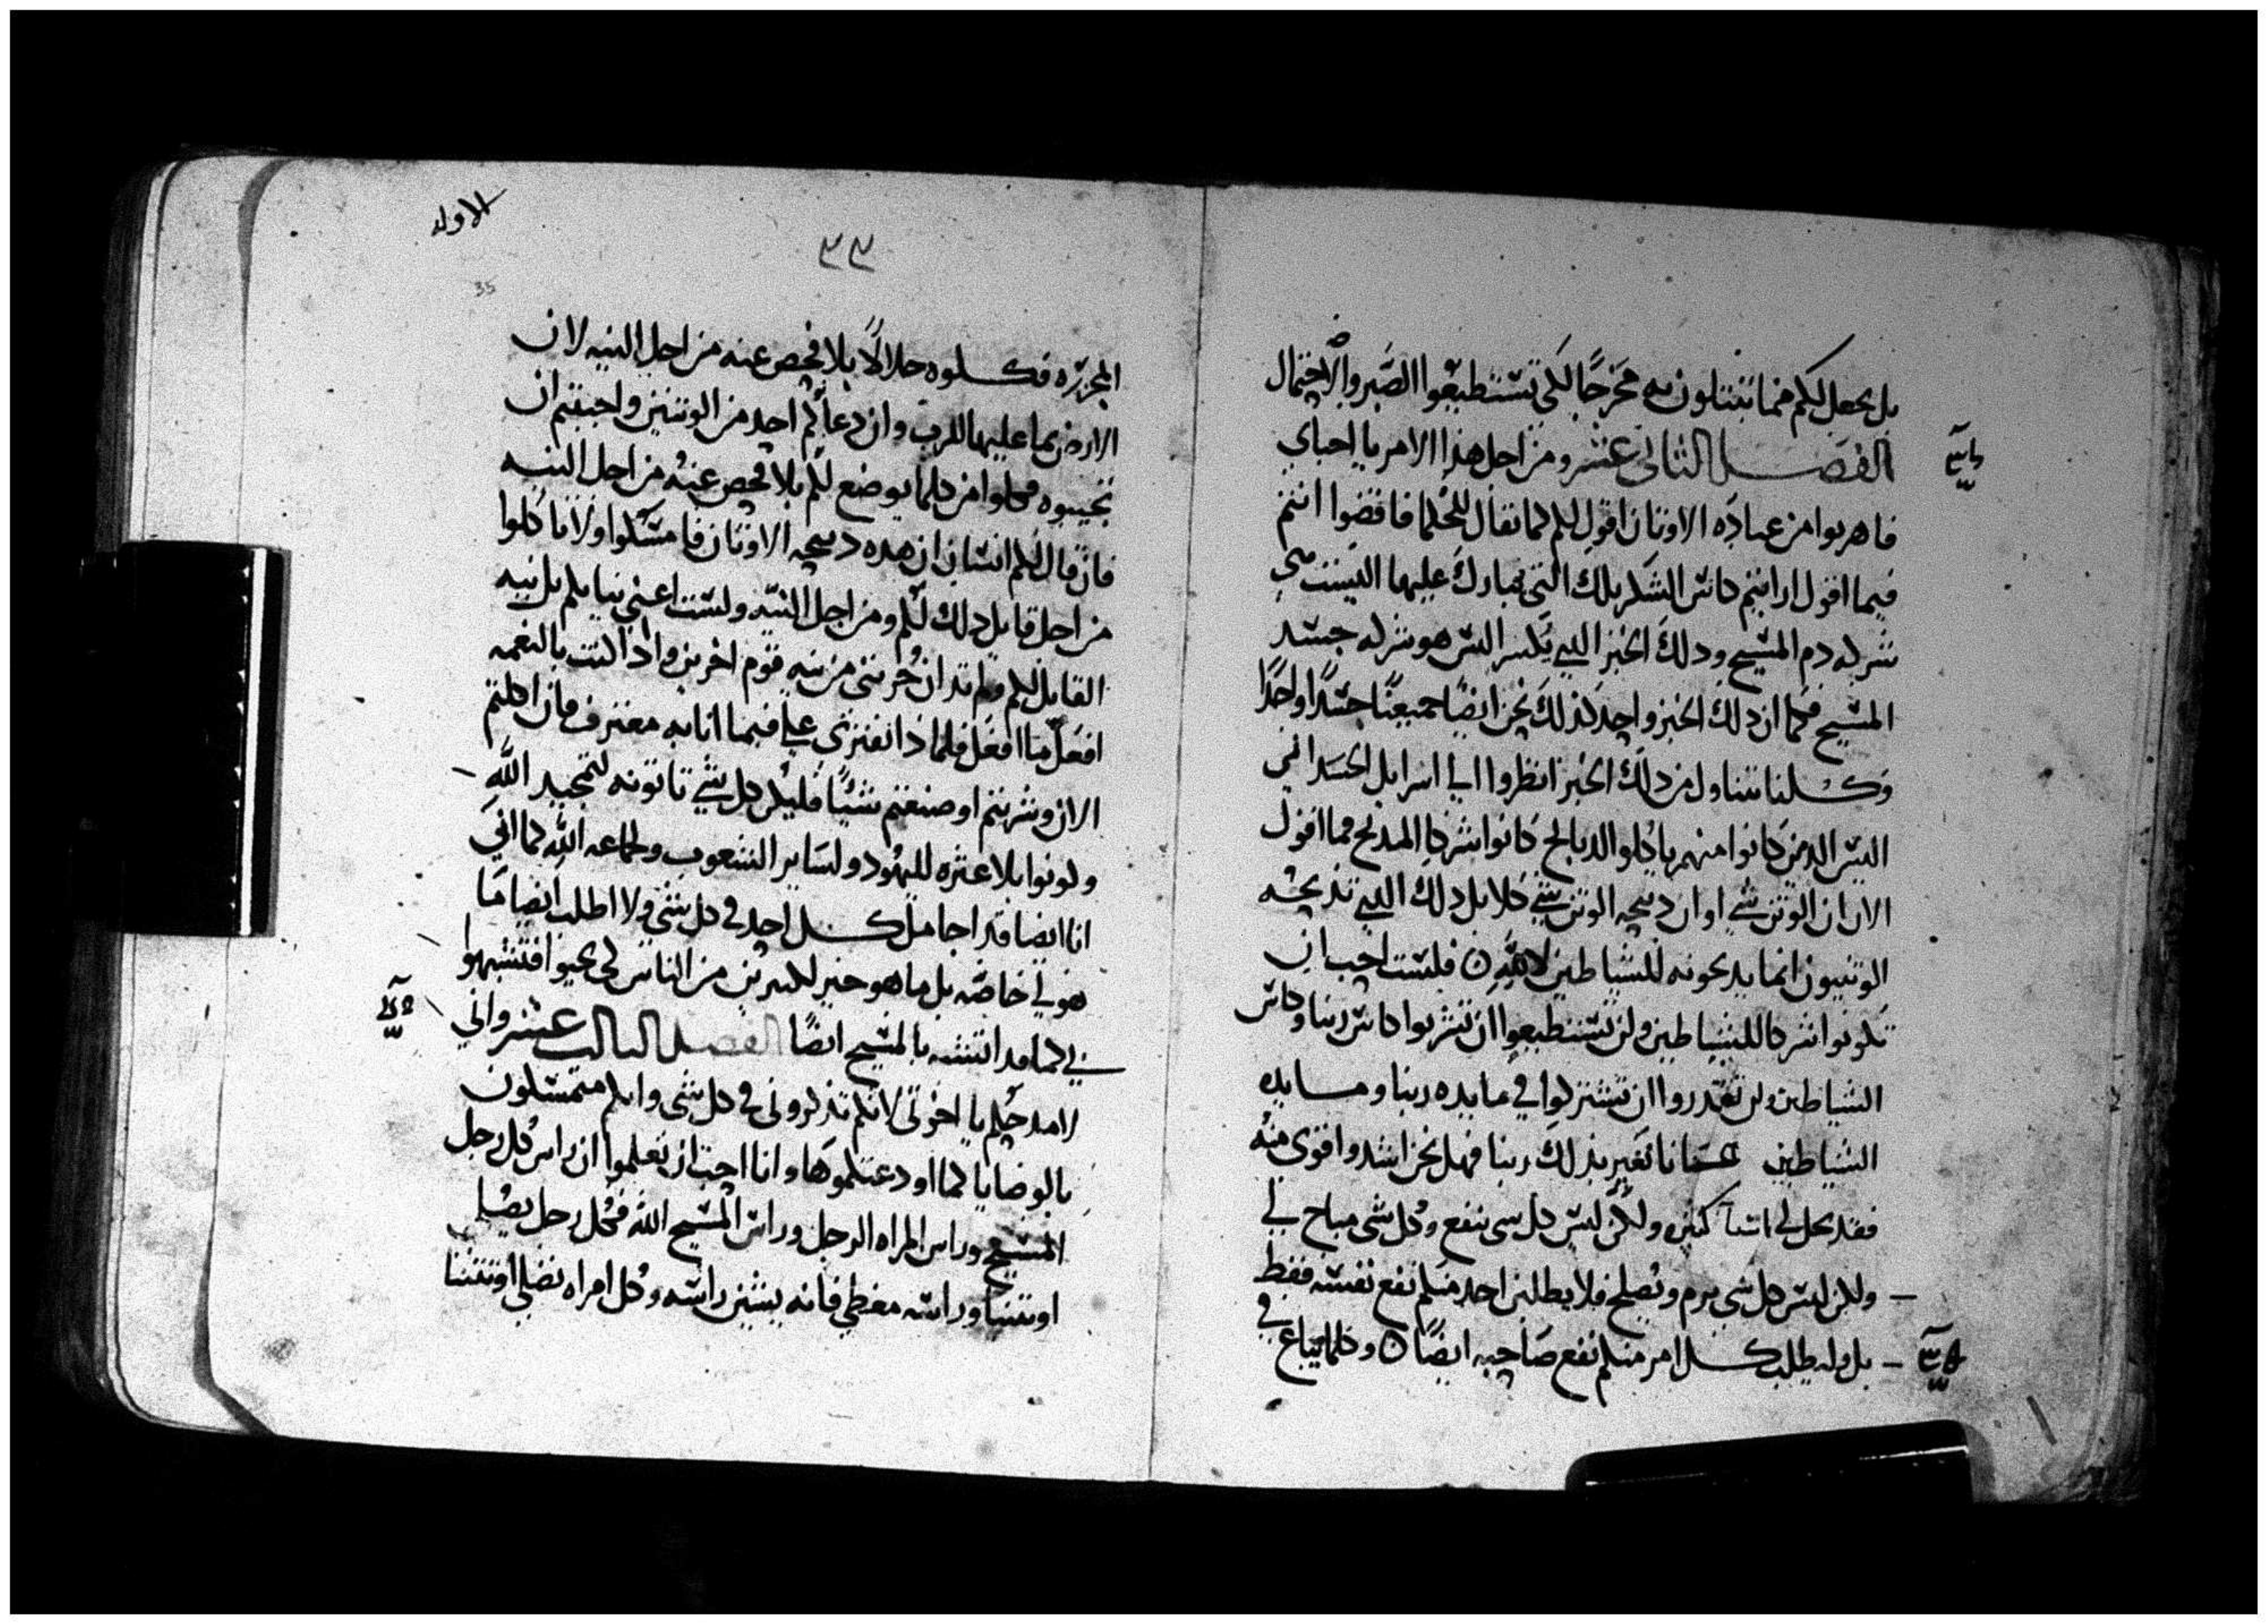 بل يجعل لكم مما تبتلون به مخرجًا لكى تستطيعوا الصبر والاحتمال
الفصل الثانى عشر ومن اجل هذا الامر يا احباي
فاهربوا من عباده الاوتان اقول لكم كما يقال للحكما فاقضوا انتم
فيما اقول ارايتم كاس الشكر تلك التى نبارك عليها اليست هي
شركه دم المسيح ودلك الخبز الدي نكسر اليس هو شركه جسد
المسيح فكما ان دلك الخبز واحد كذلك نحن ايضا جميعنا جسدًا واحدًا
وكلنا نتناول من دلك الخبز انظروا الي اسرايل الجسداني
اليس الدين كانوا منهم ياكلوا الدبايح كانوا شركا المدبح فما اقول
الان ان الوتن شي او ان دبيحه الوتن شي كلا بل دلك الدي تذبحه
الوتنيون انما يدبحونه للشياطين لا لله ٥ فلست احب ان
تكونوا شركا للشياطين ولن تستطيعوا ان تشربوا كاس ربنا وكاس
الشياطين ولن تقدروا ان تشتركوا في مايده ربنا ومايده
الشياطين عسانا نغير بذلك ربنا فهل نحن اشد واقوى منه
فقد يحل لى اشيآ كثيره ولكن ليس كل شى ينفع وكل شى مباح لي
ولكن ليس كل شي يرم ويصلح فلا يطلبن احد منكم نفع نفسه فقط
بل وليطلب كل امر منكم نفع صاحبه ايضًا ٥ وكلما يباع في
الاوله
٣٣
35
المجزره فكلوه حلالاً بلا فحص عنه من اجل النيه لان
الارض بما عليها للرب وان دعاكم احد من الوتنيين واحببتم ان
تجيبوه فكلوا من كلما يوضع لكم بلا فحص عنه من اجل النيه
فان قال لكم انسان ان هده دبيحه الاوتان فامسكوا ولا تاكلوا
من اجل قايل دلك لكم ومن اجل النيه ولست اعني نياتكم بل نيه
القايل لكم ولم تدان حريتى من نيه قوم اخرين وادا كنت بالنعمه
افعل ما افعل فلماذا نفترى علي فيما انا به معترف فان اكلتم
الان وشربتم او صنعتم شيًا فليكن كل شي تاتونه لتمجيد الله
وكونوا بلا عثره لليهود ولساير الشعوب ولجماعه الله كما اني
انا ايضا قد اجامل كل احد فى كل شى ولا اطلب ايضا ما
هو لي خاصه بل ما هو خير لكثيرين من الناس لكي يحيوا فتشبهوا
بي كما قد اتشبه بالمسيح ايضًا الفصل الثالث عشر واني
لامدحكم يا اخوتى لانكم تذكرونى في كل شى وانكم متمسكون
بالوصايا كما اودعتكموها وانا احب ان تعلموا ان راس كل رجل
المسيح وراس المراه الرجل وراس المسيح الله فكل رجل يصلي
او يتنبا وراسه مغطي فانه يشين راسه وكل امراه تصلي او تتنبا